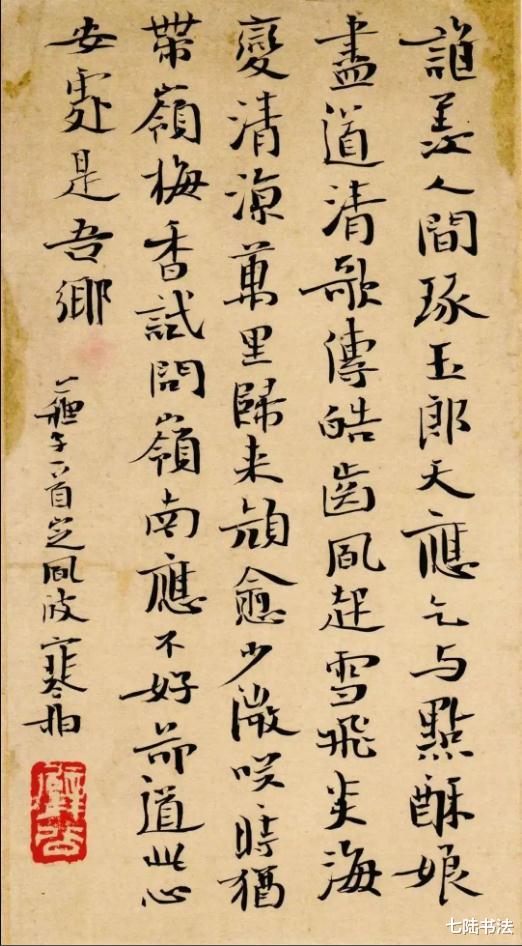 誰羨人間琢玉郎天應乞与點酥娘
盡道清歌傳皓齒風起雪飛炎海
變清涼萬里歸来顔愈少微咲時猶
帶嶺梅香試問嶺南應不好却道此心
安處是吾鄉
蘇子一首定風波寒
七陆书法